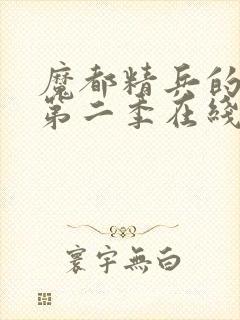 魔都精兵的
第二季在线
寰宇無白